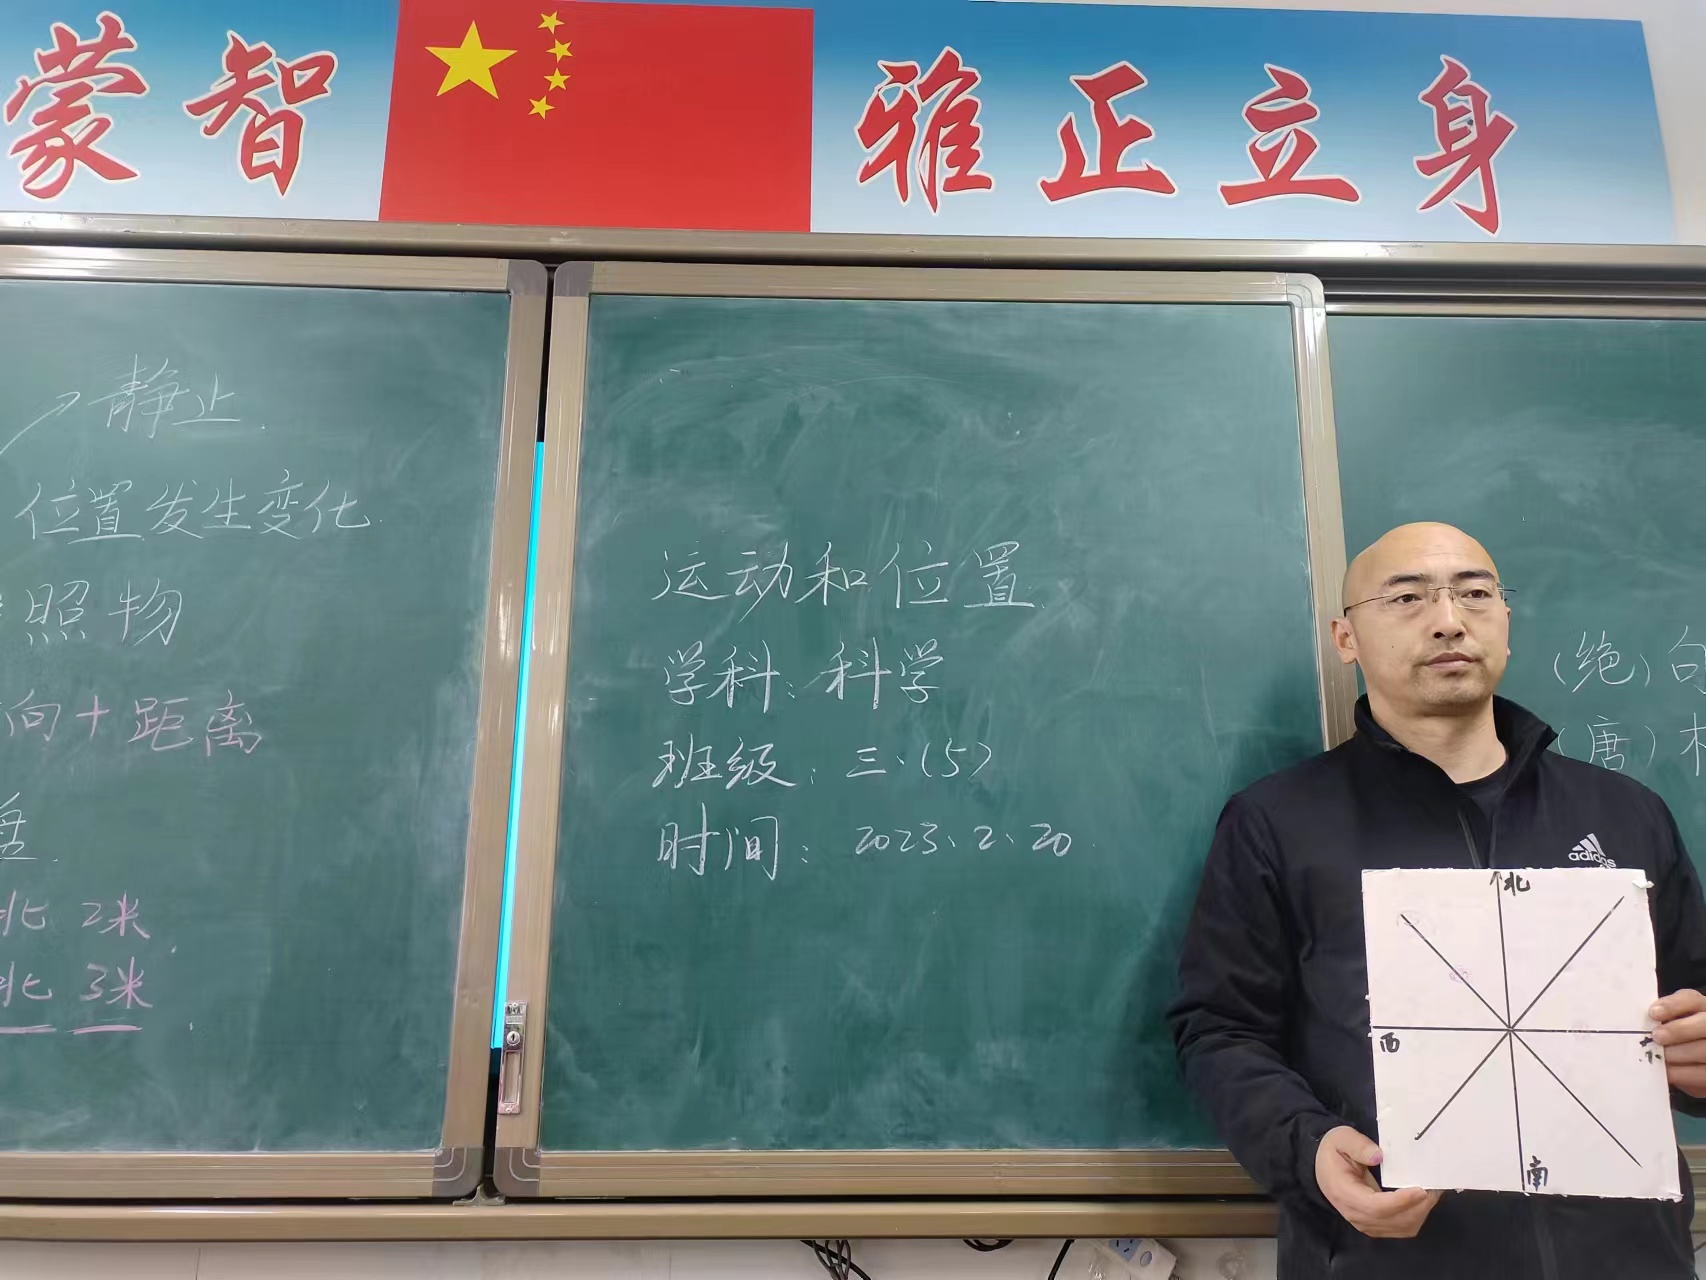 蒙智
雅正立身
静止.
位置发生变化.
照物
向+距离
盘.
北 2米
北 3米
运动和位置
学科:科学
班级:三.(5)
时间:2023.2.20
(绝)句
(唐)
adidas
北
西
东
南